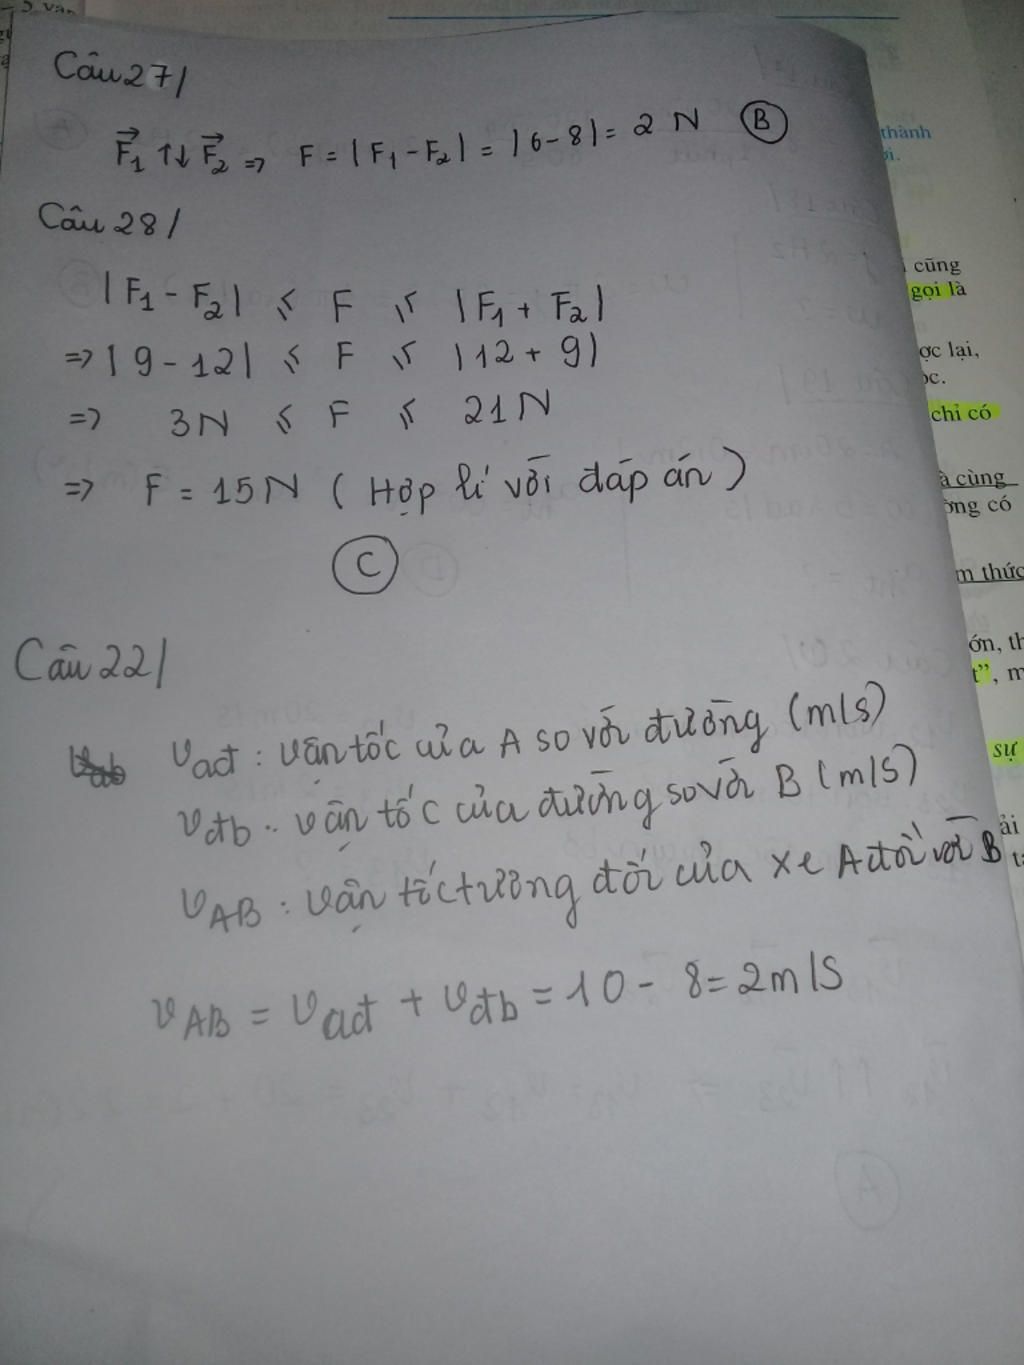 Câu 27/
F₁ ↑↓ F₂ => F = |F₁ - F₂| = |6 - 8| = 2 N B
Câu 28/
|F₁ - F₂| ≤ F ≤ |F₁ + F₂|
=> |9 - 12| ≤ F ≤ |12 + 9|
=> 3N ≤ F ≤ 21N
=> F = 15N (Hợp lí với đáp án)
C
Câu 22/
vađ : vận tốc của A so với đường (m/s)
vđb : vận tốc của đường so với B (m/s)
vAB : vận tốc tương đối của xe A đối với B
vAB = vađ + vđb = 10 - 8 = 2m/s
thành
cũng
gọi là
ợc lại,
chỉ có
à cùng
ờng có
m thức
ớn, th
sự